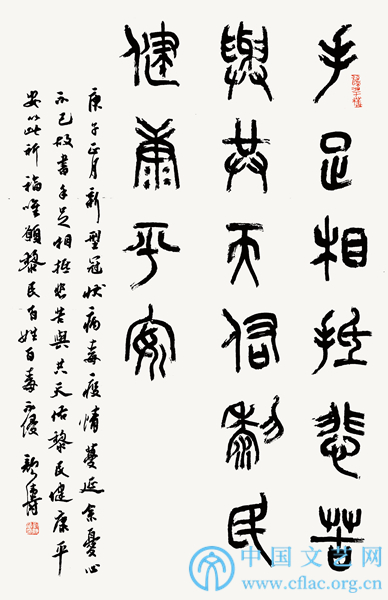 手足相抵悲苦
與共天佑黎民
健康平安
庚子正月新型冠狀病毒疫情蔓延余憂心
不已故書手足相抵悲苦與共天佑黎民健康平
安以此祈福唯願黎民百姓百毒不侵
中国文艺网
www.cflac.org.cn